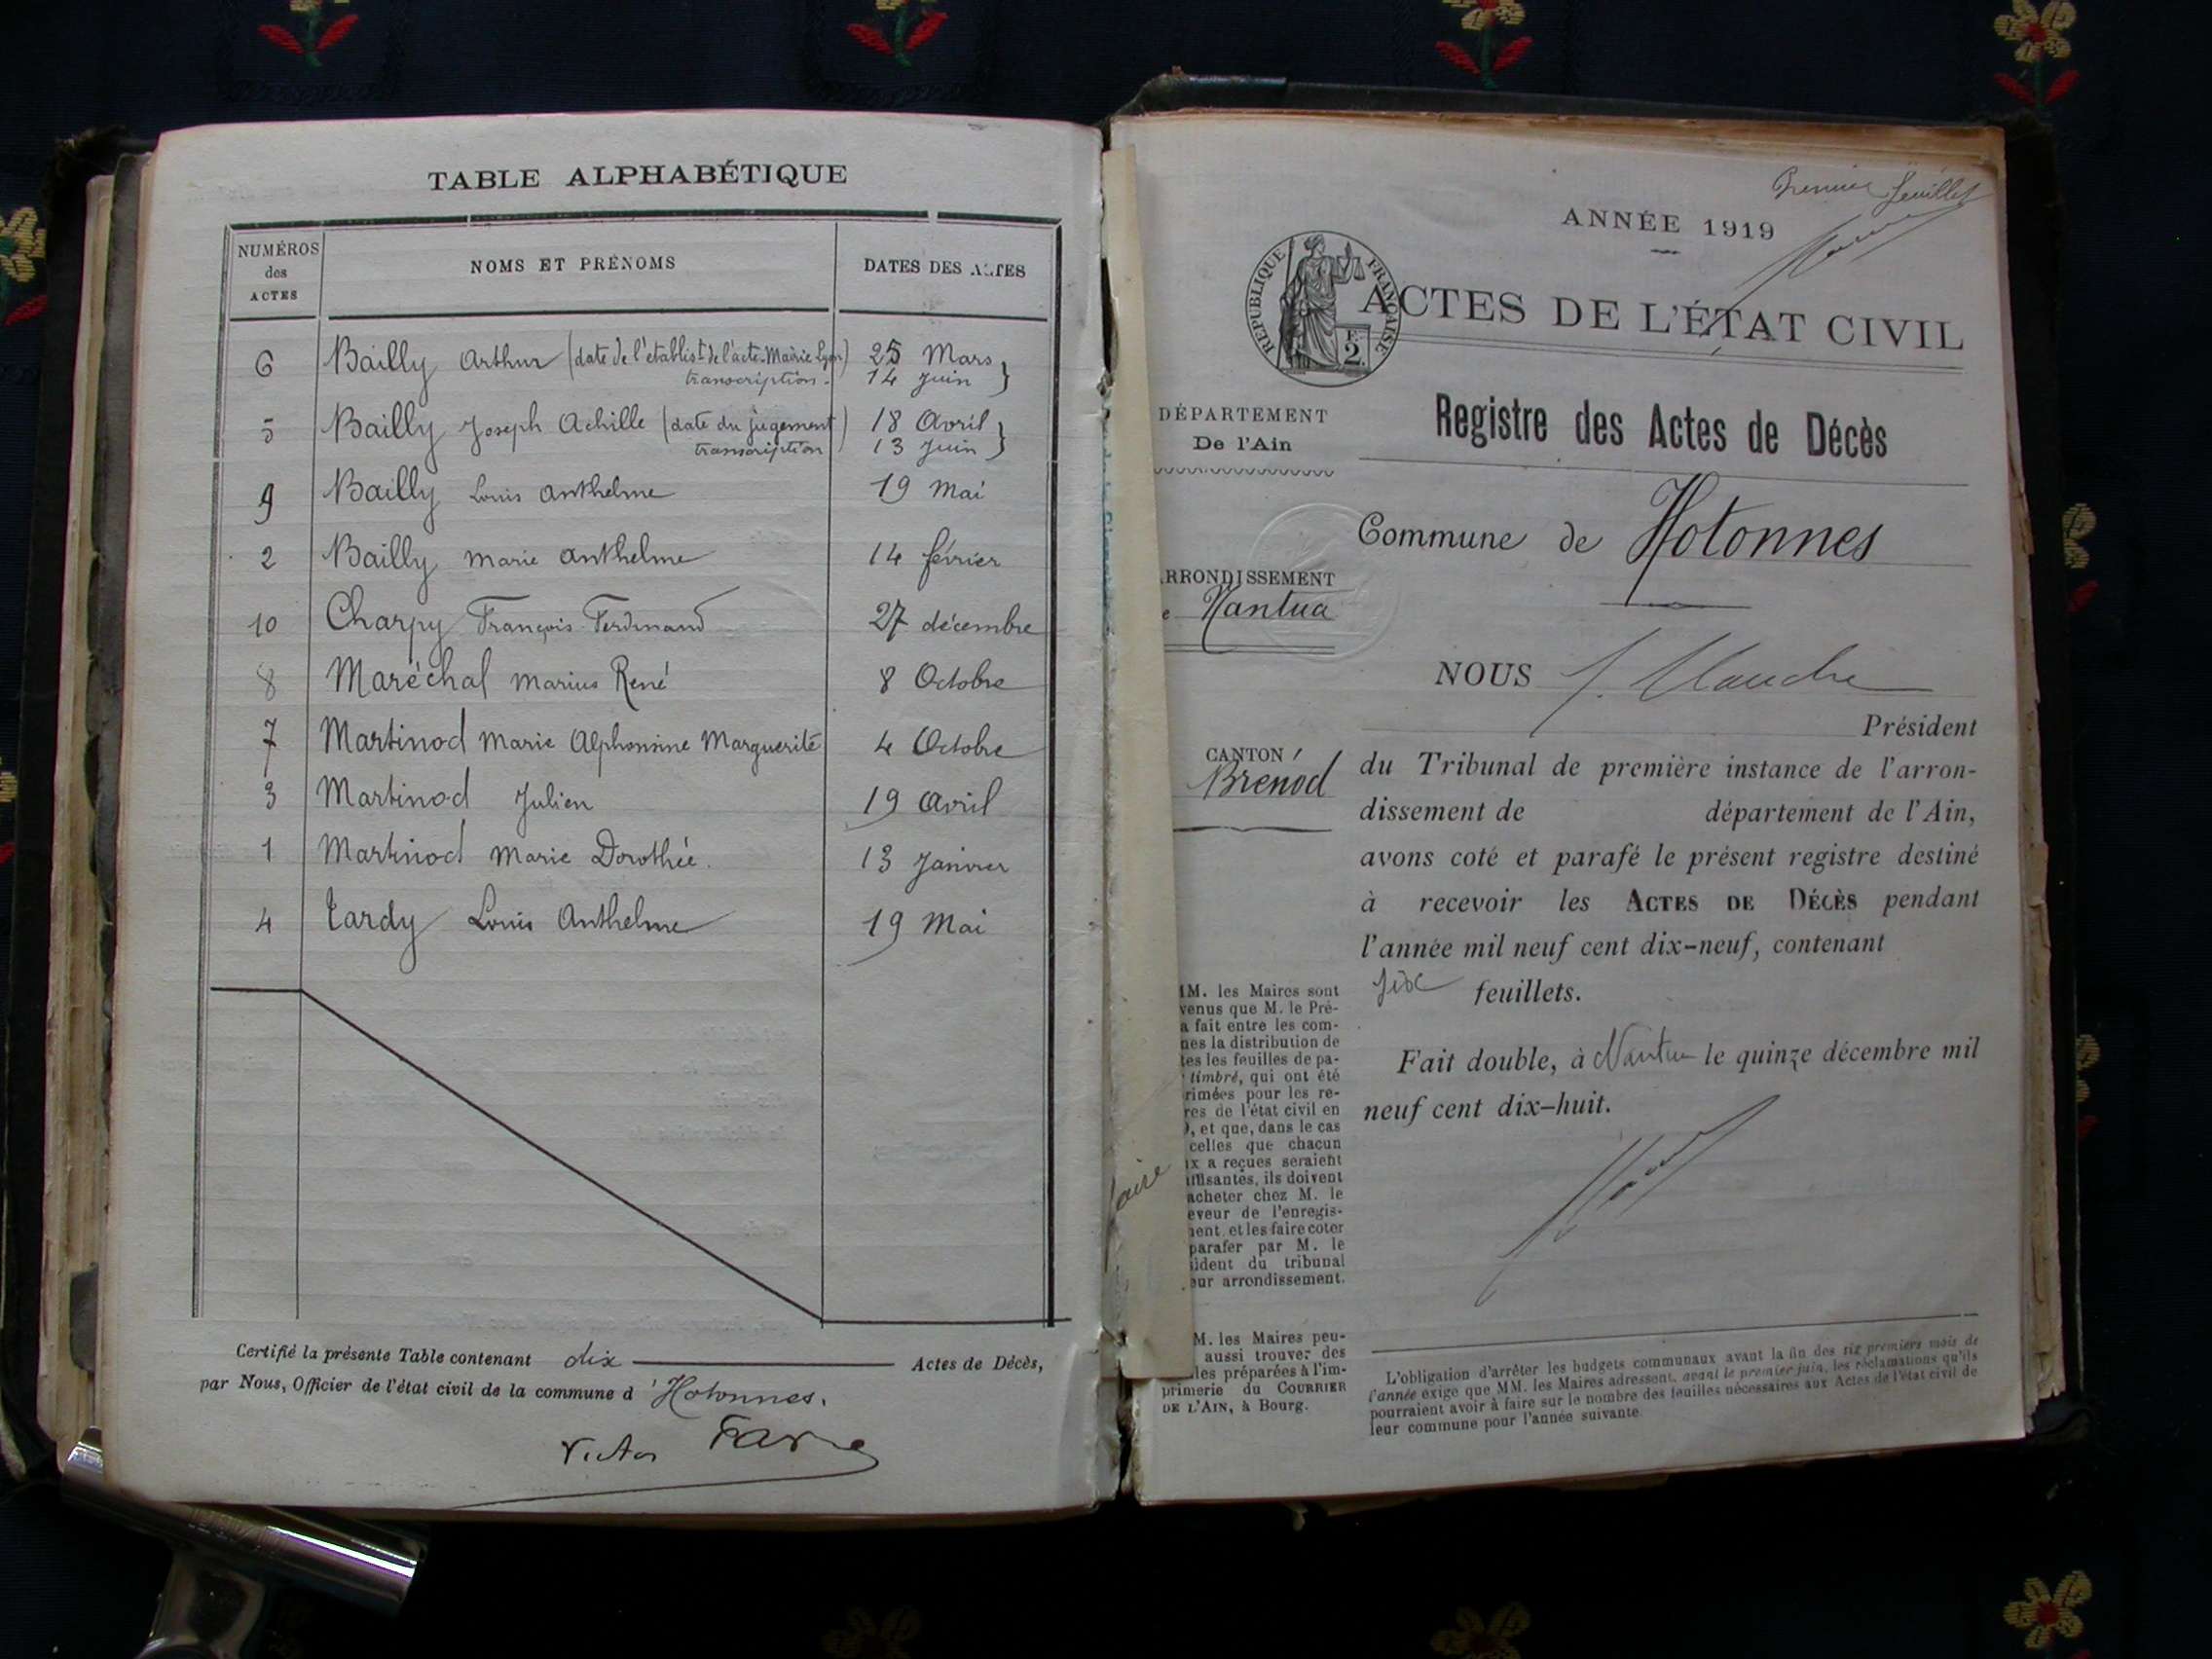 TABLE ALPHABÉTIQUE
NUMÉROS des ACTES
NOMS ET PRÉNOMS
DATES DES ACTES
6 Bailly Arthur (date de l'établist de l'acte. Mairie Lyon) 25 Mars
transcription - 14 Juin
5 Bailly Joseph Achille (date du jugement) 18 Avril
transcription 13 Juin
9 Bailly Louis Anthelme 19 Mai
2 Bailly Marie Anthelme 14 février
10 Charpy François Ferdinand 27 décembre
8 Maréchal Marius René 8 Octobre
7 Martinod Marie Alphonsine Marguerite 4 Octobre
3 Martinod Julien 19 Avril
1 Martinod Marie Dorothée. 13 Janvier
4 Tardy Louis Anthelme 19 Mai
Certifié la présente Table contenant dix Actes de Décès,
par Nous, Officier de l'état civil de la commune d'Hotonnes.
Victor Favre
Premier feuillet
ANNÉE 1919
RÉPUBLIQUE FRANÇAISE
F. 2
ACTES DE L'ÉTAT CIVIL
DÉPARTEMENT
De l'Ain
Registre des Actes de Décès
Commune de Hotonnes
RRONDISSEMENT
e Nantua
NOUS
Président
CANTON
Brenod
du Tribunal de première instance de l'arron-
dissement de département de l'Ain,
avons coté et parafé le présent registre destiné
à recevoir les ACTES DE DÉCÈS pendant
l'année mil neuf cent dix-neuf, contenant
six feuillets.
Fait double, à Nantua le quinze décembre mil
neuf cent dix-huit.
MM. les Maires sont
venus que M. le Pré-
a fait entre les com-
nes la distribution de
tes les feuilles de pa-
timbré, qui ont été
rimées pour les re-
res de l'état civil en
, et que, dans le cas
celles que chacun
ux a reçues seraient
uffisantes, ils doivent
acheter chez M. le
eveur de l'enregis-
ment et les faire coter
parafer par M. le
sident du tribunal
eur arrondissement.
M. les Maires peu-
aussi trouver des
les préparées à l'im-
primerie du COURRIER
DE L'AIN, à Bourg.
aire
L'obligation d'arrêter les budgets communaux avant la fin des six premiers mois de
l'année exige que MM. les Maires adressent, avant le premier juin, les réclamations qu'ils
pourraient avoir à faire sur le nombre des feuilles nécessaires aux Actes de l'état civil de
leur commune pour l'année suivante.